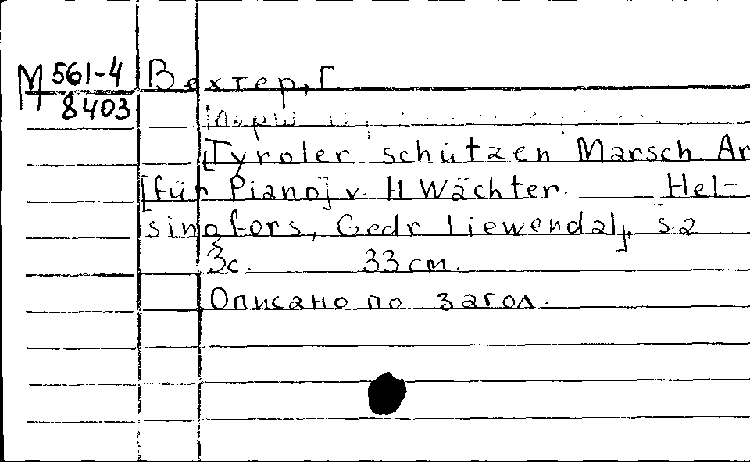 М 561-4
8403
Вехтер, Г
[Tyroler schützen Marsch Ar
[für Piano] v. H Wächter. Hel-
singfors, Gedr Liewendal, s a
3с. 33 cm.
Описано по загол.